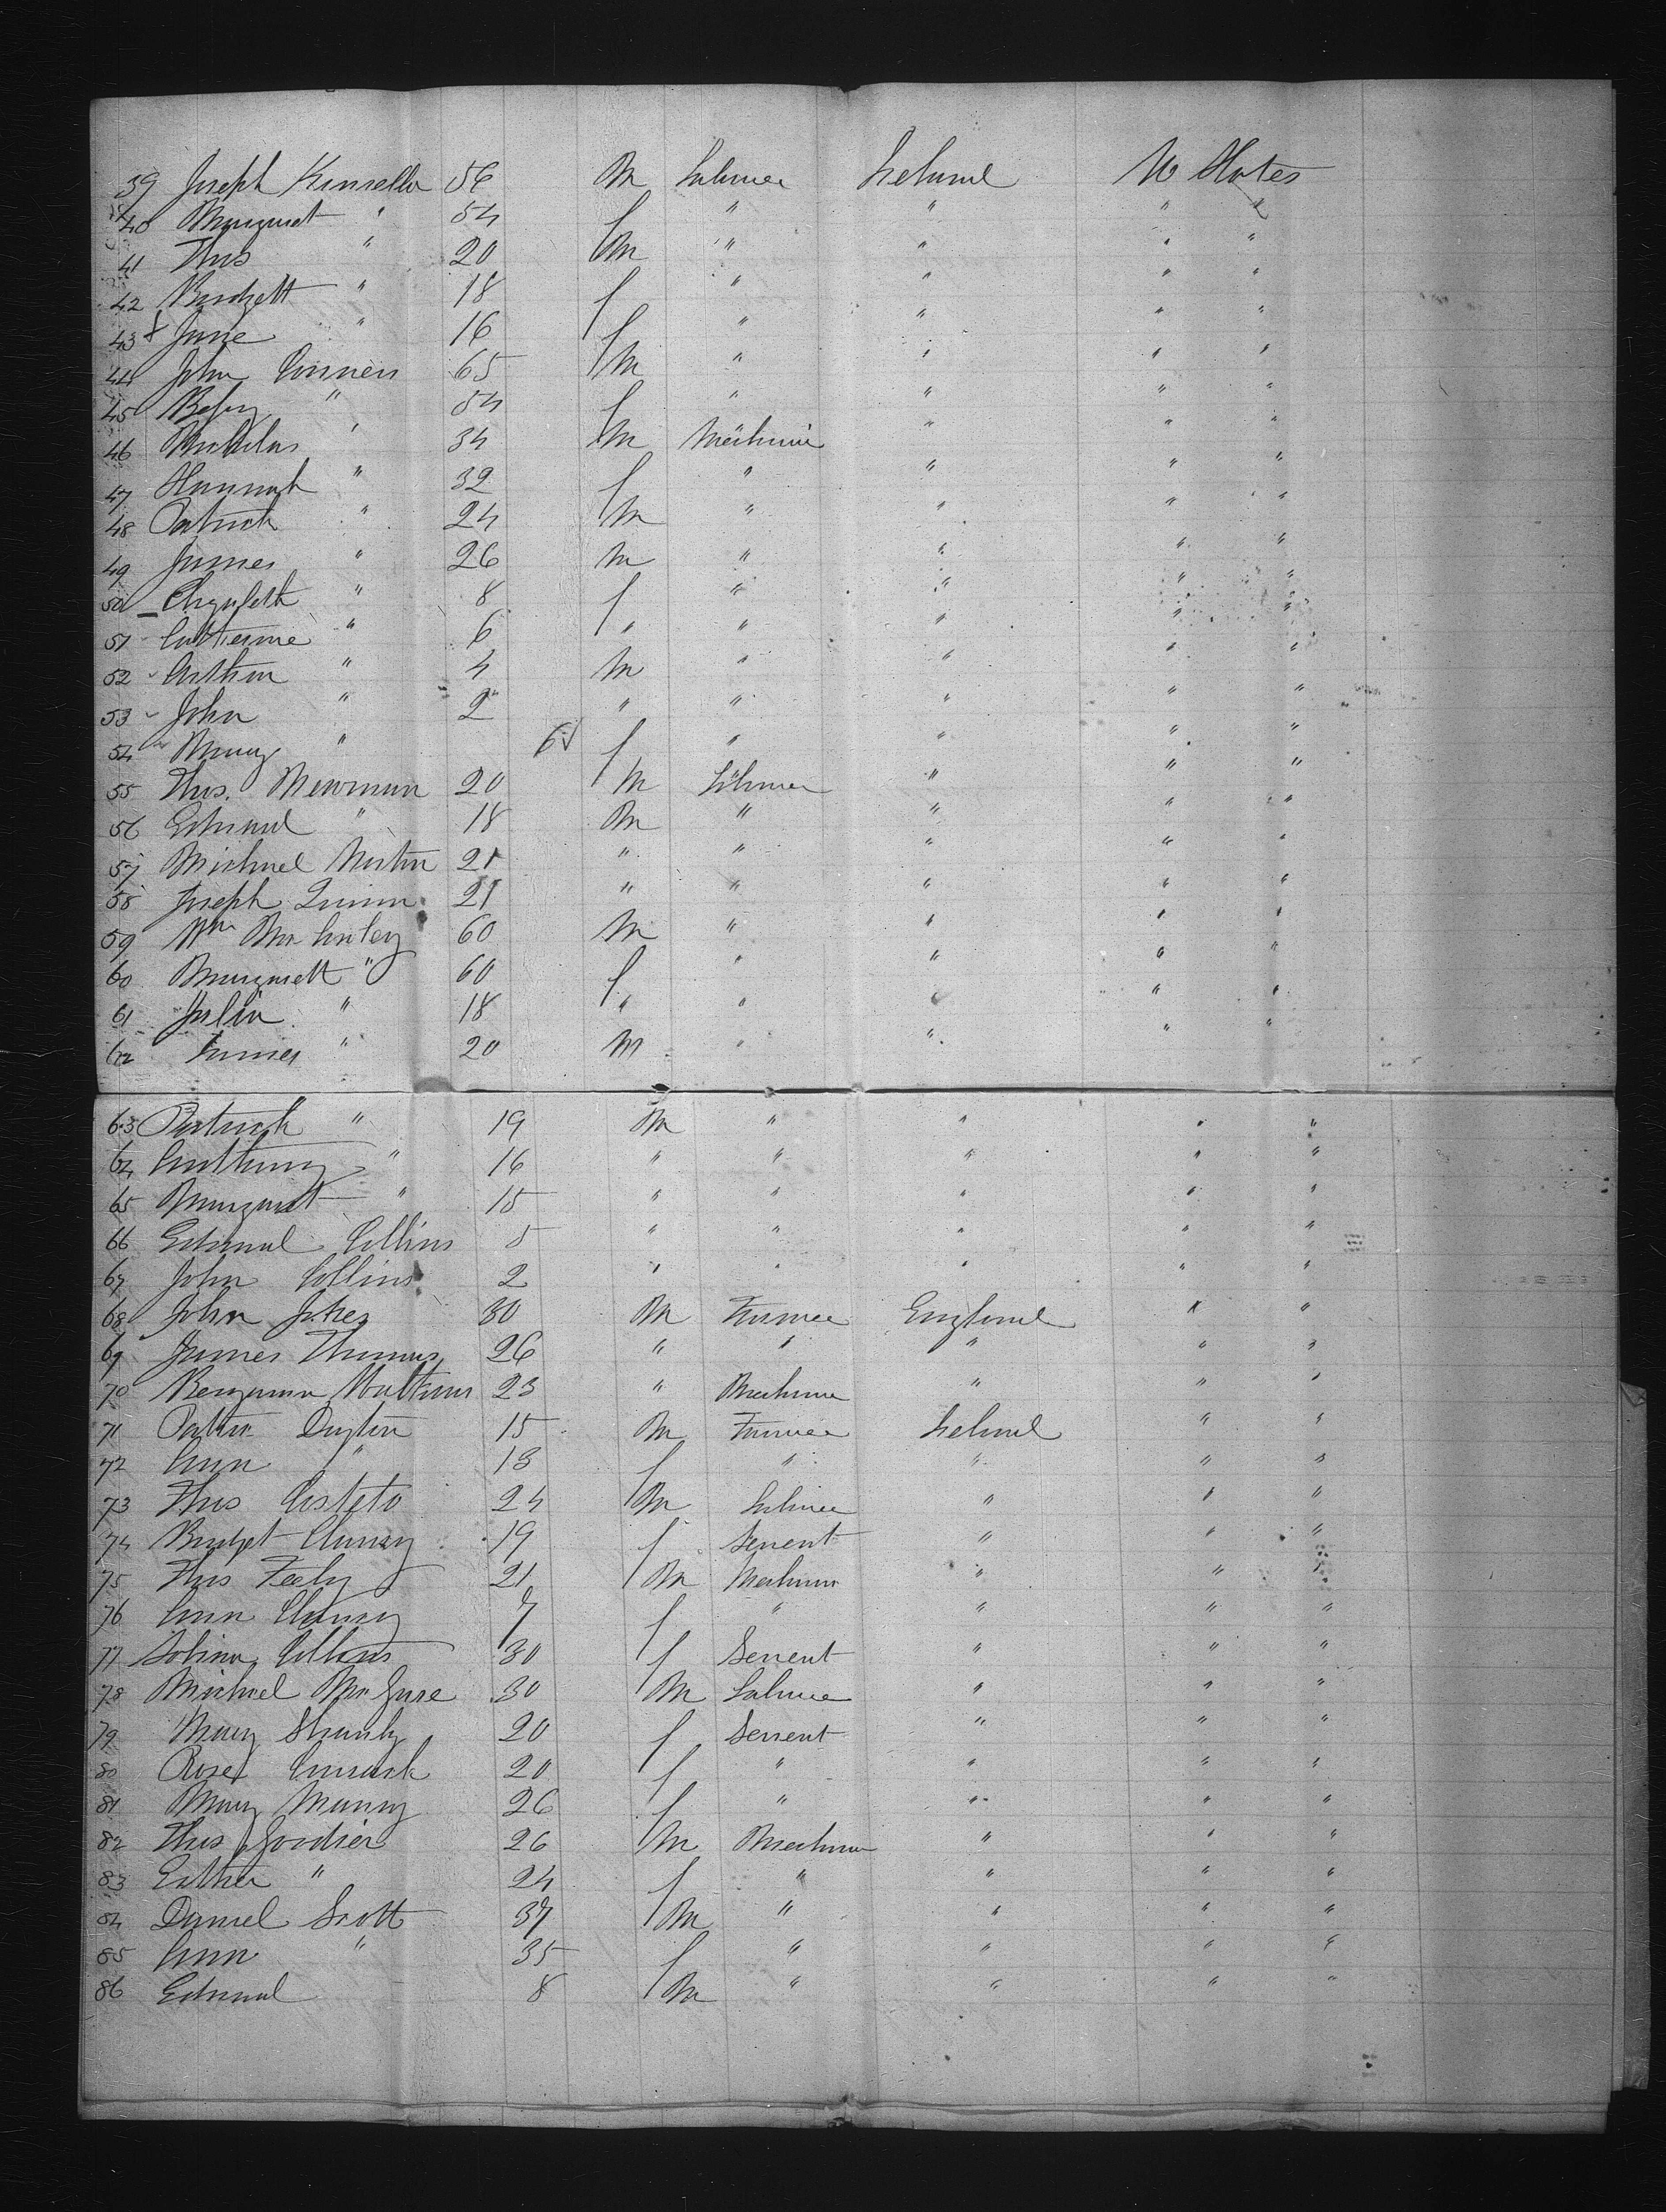 39 Joseph Kinsella 56 M Laborer Ireland U States
40 Margaret " 54 f " " " "
41 Thos " 20 M " " " "
42 Bridgett " 18 f " " " "
43 + Jane " 16 f " " " "
44 John Conners 65 M " " " "
45 Betsy " 54 f " " " "
46 Nicholas " 34 M Mechanic " " "
47 Hannah " 32 f " " " "
48 Patrick " 24 M " " " "
49 James " 26 M " " " "
50 " 8 f " " " "
51 Catherine " 6 " " " " "
52 Arthur " 4 M " " " "
53 John " 2 " " " " "
54 Mary " 6 f " " " "
55 Thos. Newman 20 M Laborer " " "
56 Edward " 18 M " " " "
57 Michael 21 " " " " "
58 Joseph Quinn 21 " " " " "
59 Wm 60 M " " " "
60 Margarett " 60 f " " " "
61 Julia " 18 " " " " "
62 James " 20 M " " " "
63 Patrick " 19 M " " " "
64 Anthony " 16 " " " " "
65 Margaret " 15 " " " " "
66 Edward Collins 5 " " " " "
67 John Collins 2 " " " " "
68 John 30 M Farmer England " "
69 James Thomas 26 " " " " "
70 Benjamin Watkins 23 " Mechanic " " "
71 Dayton 15 M Farmer Ireland " "
72 Ann " 13 f " " " "
73 Thos 24 M Laborer " " "
74 Bridget Clancy 19 f Servent " " "
75 Thos Feely 21 M Mechanic " " "
76 Ann Clancy 7 f " " " "
77 Collins 30 f Servent " " "
78 Michael McGure 30 M Laborer " " "
79 Mary 20 f Servent " " "
80 Rose 20 f " " " "
81 Mary 26 f " " " "
82 Thos 26 M Mechanic " " "
83 Esther " 24 f " " " "
84 Daniel Scott 37 M " " " "
85 Ann " 35 f " " " "
86 Edward 8 M " " " "